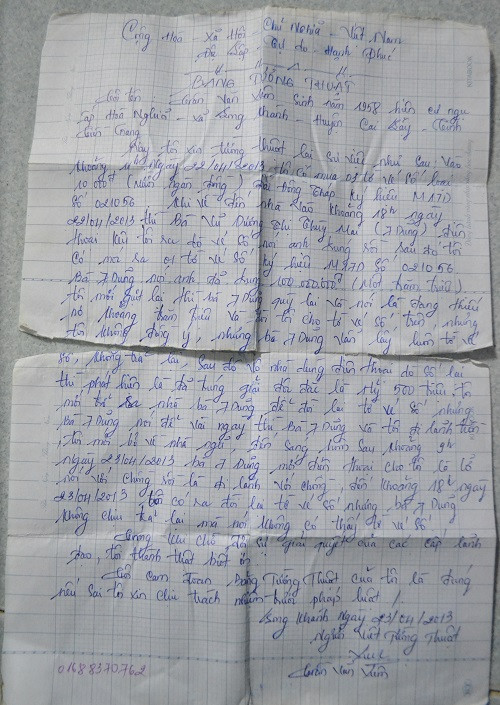 Cộng Hoà Xã Hội Chủ Nghĩa - Việt Nam
Độc Lập - Tự do - Hạnh Phúc
BẢNG TƯỜNG THUẬT
Tôi tên Trần Văn Xiếu Sinh năm 1958 hiện cư ngụ
Ấp Hoà Nghĩa - xã Long Khánh - Huyện Cai Lậy - Tỉnh
Tiền Giang
Nay tôi xin tường thuật lại sự việc như sau, Vào
khoảng Ngày 22/04/2013 tôi có mua 01 tờ vé số loại
10.000đ (Mười ngàn đồng) đài Đồng Tháp ký hiệu M17D
Số 021056 khi về đến nhà vào khoảng 18h ngày
22/04/2013 thì Bà Vũ Dương Thị Thúy Mai (7 Dũng) điện
thoại kêu tôi ra dò vé số nơi anh sau đó tôi
có ra 01 tờ vé số ký hiệu M17D Số 021056
Bà 7 Dũng nói anh đã trúng 100.000.000đ (Một trăm triệu)
tôi mới gửi lại thì bà 7 Dũng quay lại và nói là đang thiếu
nợ khoảng trăm triệu và tôi cho tờ vé số trên, nhưng
tôi không đồng ý, nhưng bà 7 Dũng vẫn lấy luôn tờ vé
số, không trả lại, Sau đó về nhà dùng điện thoại dò số lại
thì phát hiện là đã trúng giải đặc biệt là 1tỷ 500 triệu, tôi
mới trở ra nhà bà 7 Dũng để đòi lại tờ vé số nhưng
Bà 7 Dũng nói để vài ngày thì Bà 7 Dũng và tôi đi lãnh tiền
, tôi mới về nhà ngủ, đến sáng hôm sau khoảng 9h
ngày 23/04/2013 bà 7 Dũng mới điện thoại cho tôi là lỡ
nói với chồng rồi là đi lãnh với chồng, đến khoảng 18h ngày
23/04/2013 tôi có ra đòi lại tờ vé số nhưng bà 7 Dũng
không chịu trả lại mà nói không có thấy tờ vé số.
Trong khi chờ đợi sự giải quyết của các cấp lãnh
đạo, tôi thành thật biết ơn
Tôi cam đoan Bảng Tường Thuật của tôi là đúng
nếu sai tôi xin chịu trách nhiệm trước pháp luật !
Long Khánh Ngày 23/04/2013
Người Viết Tường Thuật
Trần Văn Xiếu
01688370762